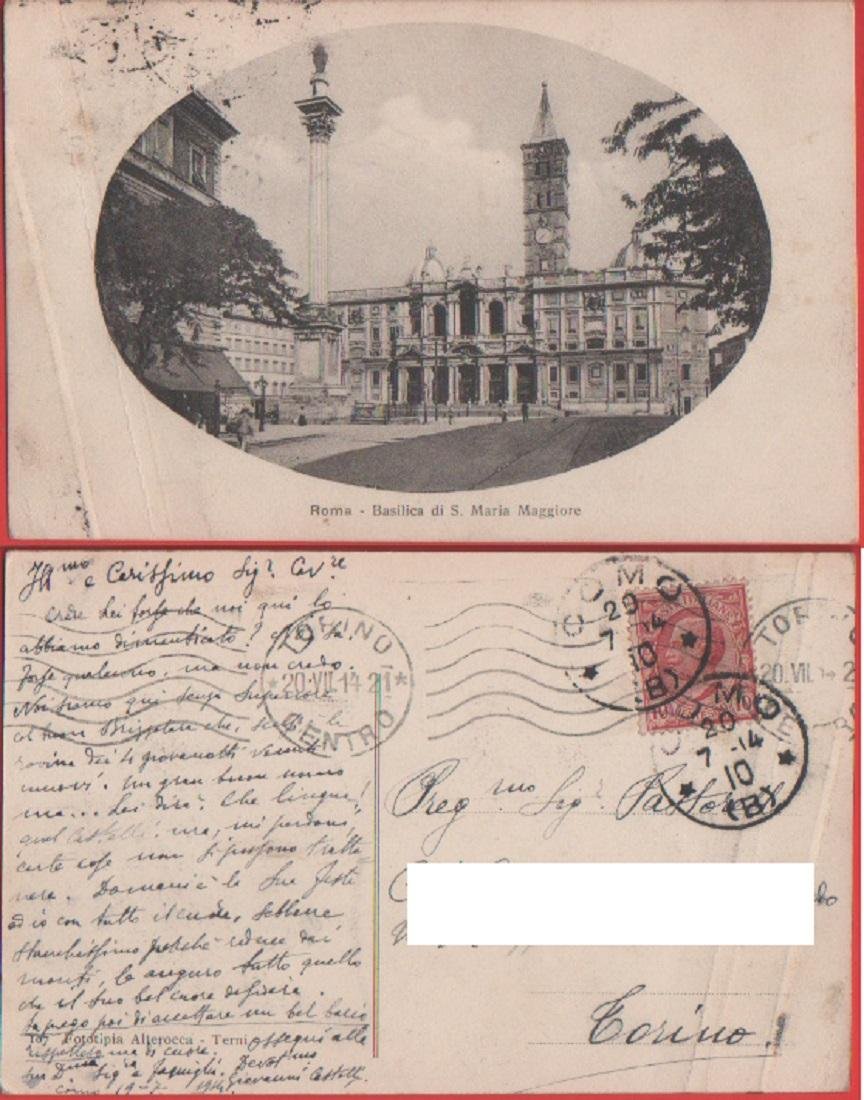 Roma - Basilica di S. Maria Maggiore
Ill.mo e Carissimo Sig.r Cav.re
Crede Lei forse che noi qui lo
abbiamo dimenticato?
Forse qualcuno, ma non credo.
Noi siamo qui senza Superiore
col buon
rovina dei giovanotti venuti
nuovi. Un gran buon uomo
ma... Lei dirà: Che lingua!
quel Castelli. ma, mi perdoni,
certe cose non si possono tratte
nere. Domani è la Sua festa
ed io con tutto il cuore, sebbene
stanchissimo perchè reduce dai
monti, le auguro tutto quello
che il Suo bel cuore desidera.
La prego poi di accettare un bel bacio
rispettoso ma di cuore. Ossequi alla
Sig.a e famiglia. Dev.osimo
Como 19-7-1914 Giovanni Castelli
107 Fototipia Alterocca - Terni
TORINO
*20.VII.14 21*
CENTRO
COMO
20
7 -14
10
(B)
COMO
20
7 -14
10
(B)
TOR
20.VII.
Preg.mo Sig.r Pastore
Torino